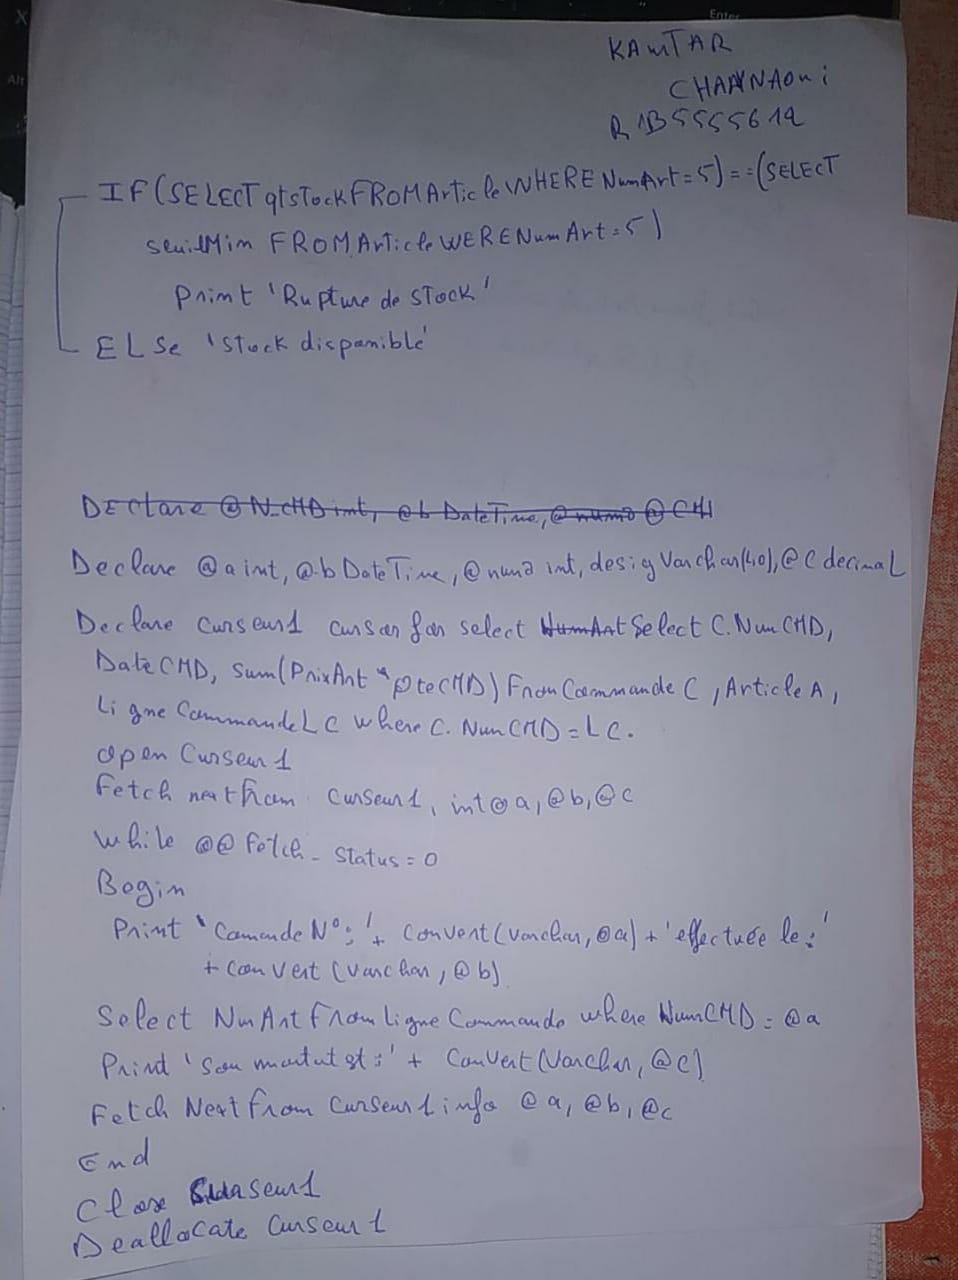 KAMTAR
CHAAYNAOUi
R1B5555612
IF (SELECT qtstock FROM Article WHERE NumArt=5) == (SELECT
seuilMin FROM Article WERE NumArt=5)
print 'Rupture de stock'
ELSe 'stock disponible'
DEclare @N_CMD int, @b DateTime, @num2 @CM
Declare @a int, @b DateTime, @num2 int, desig Varchar(40), @C decimal
Declare curseur1 cursor for select NumArt Select C.NumCMD,
DateCMD, sum(PrixArt * QteCMD) From Commande C, Article A,
Ligne Commande LC where C.NumCMD = LC.
open Curseur1
Fetch next from curseur1, int @a, @b, @c
while @@ Fetch_status = 0
Begin
Print 'Comande N°:' + convert(varchar, @a) + 'effectuée le:'
+ convert (varchar, @b)
Select NumArt from Ligne Commande where NumCMD = @a
Print 'Son mortut st:' + Convert(Varchar, @c)
Fetch Next from Curseur1 info @a, @b, @c
End
Close Curseur1
Deallocate Curseur1
Enter
X
Alt